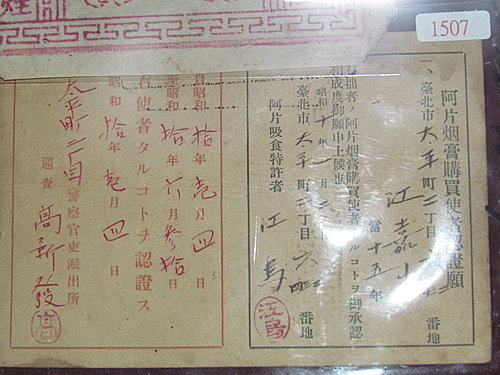 1507
阿片烟膏購買使者認證願
一、臺北市太平町二丁目 番地
江嘉
當十五年
右拙者ノ阿片烟膏購買使者タルコトヲ御承認
相成度御願申上候也
昭和十年一月 日
臺北市太平町二丁目六四 番地
阿片吸食特許者 江烏
自昭和拾年壱月四日
至昭和拾年六月參拾日
右使者タルコトヲ認證ス
昭和拾年壱月四日
太平町二丁目警察官吏派出所
巡査 高新發
高